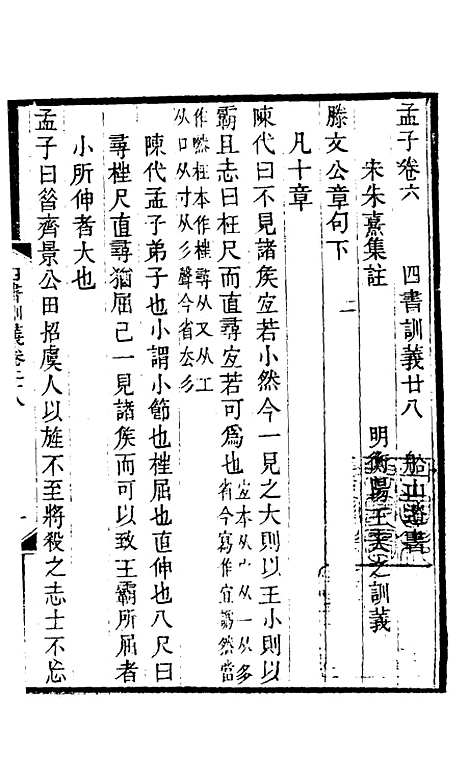 孟子卷六　四書訓義廿八　船山遺書
宋朱熹集註　明衡陽王夫之訓義
滕文公章句下
凡十章
陳代曰不見諸矦宐若小然今一見之大則以王小則以
霸且志曰枉尺而直尋宐若可爲也
宐本从宀从一从多
省今寫作宜譌然當
作嘫枉本作桂尋从又从工
从口从寸从彡聲今省厺彡
陳代孟子弟子也小謂小節也桂屈也直伸也八尺曰
尋桂尺直尋猶屈己一見諸矦而可以致王霸所屈者
小所伸者大也
孟子曰昝齊景公田招虞人以旌不至將殺之志士不忘
四書訓義卷二十八
一